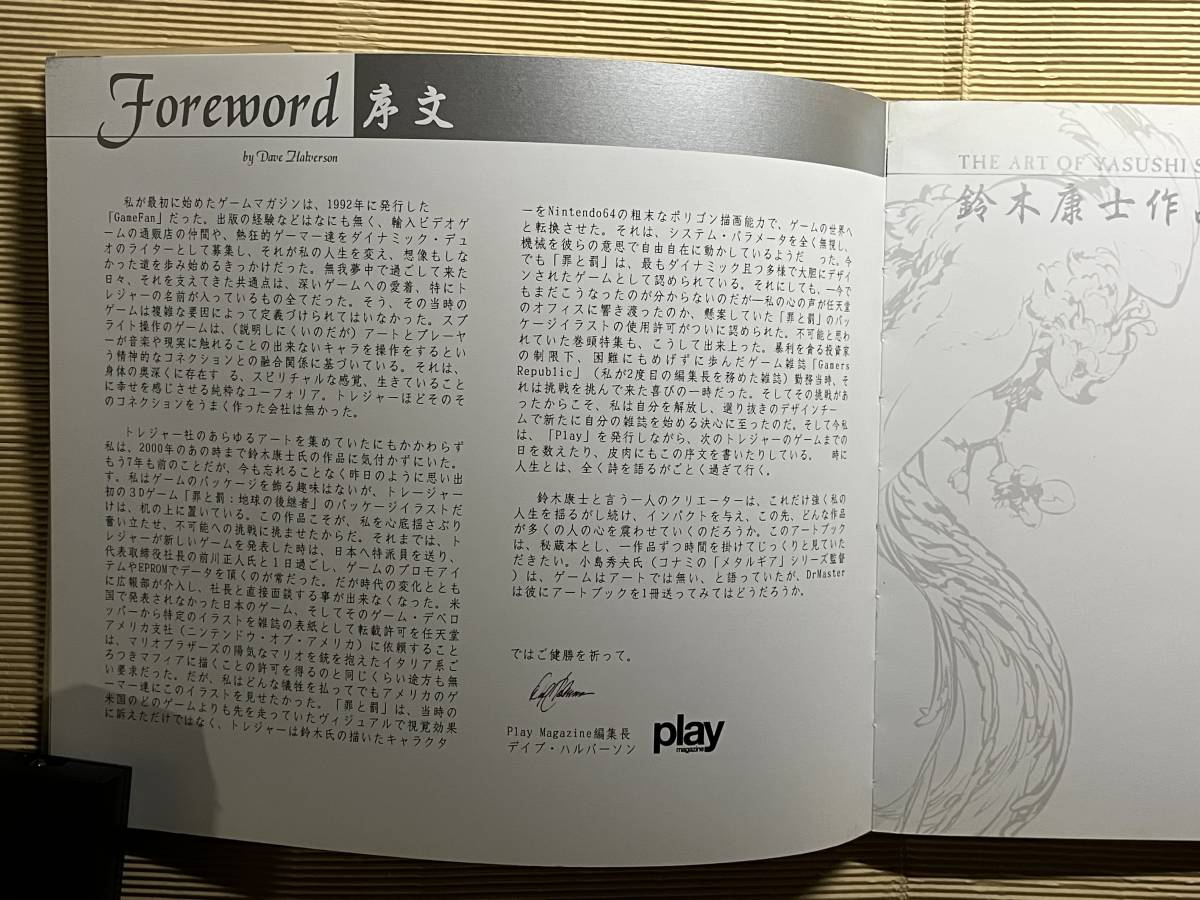 Foreword 序文
by Dave Halverson
私が最初に始めたゲームマガジンは、1992年に発行した
「GameFan」だった。出版の経験などはなにも無く、輸入ビデオゲ
ームの通販店の仲間や、熱狂的ゲーマー達をダイナミック・デュ
オのライターとして募集し、それが私の人生を変え、想像もしな
かった道を歩み始めるきっかけだった。無我夢中で過ごして来た
日々、それを支えてきた共通点は、深いゲームへの愛着、特にト
レジャーの名前が入っているもの全てだった。そう、その当時の
ゲームは複雑な要因によって定義づけられてはいなかった。スプ
ライト操作のゲームは、(説明しにくいのだが)アートとプレーヤ
ーが音楽や現実に触れることの出来ないキャラを操作をするとい
う精神的なコネクションとの融合関係に基づいている。それは、
身体の奥深くに存在す る、スピリチャルな感覚、生きていること
に幸せを感じさせる純粋なユーフォリア。トレジャーほどそのそ
のコネクションをうまく作った会社は無かった。
トレジャー社のあらゆるアートを集めていたにもかかわらず
私は、2000年のあの時まで鈴木康士氏の作品に気付かずにいた。
もう7年も前のことだが、今も忘れることなく昨日のように思い出
す。私はゲームのパッケージを飾る趣味はないが、トレージャー
初の3Dゲーム「罪と罰：地球の後継者」のパッケージイラストだ
けは、机の上に置いている。この作品こそが、私を心底揺さぶり
奮い立たせ、不可能への挑戦に挑ませたからだ。それまでは、ト
レジャーが新しいゲームを発表した時は、日本へ特派員を送り、
代表取締役社長の前川正人氏と1日過ごし、ゲームのプロモアイ
テムやEPROMでデータを頂くのが常だった。だが時代の変化ととも
に広報部が介入し、社長と直接面談する事が出来なくなった。米
国で発表されなかった日本のゲーム、そしてそのゲーム・デベロ
ッパーから特定のイラストを雑誌の表紙として転載許可を任天堂
アメリカ支社（ニンテンドウ・オブ・アメリカ）に依頼すること
は、マリオブラザーズの陽気なマリオを銃を抱えたイタリア系ご
ろつきマフィアに描くことの許可を得るのと同じくらい途方も無
い要求だった。だが、私はどんな犠牲を払ってでもアメリカのゲ
ーマー達にこのイラストを見せたかった。「罪と罰」は、当時の
米国のどのゲームよりも先を走っていたヴィジュアルで視覚効果
に訴えただけではなく、トレジャーは鈴木氏の描いたキャラクタ
ーをNintendo64の粗末なポリゴン描画能力で、ゲームの世界へ
と転換させた。それは、システム・パラメータを全く無視し、
機械を彼らの意思で自由自在に動かしているようだ った。今
でも「罪と罰」は、最もダイナミック且つ多様で大胆にデザイ
ンされたゲームとして認められている。それにしても、―今で
もまだこうなったのが分からないのだが―私の心の声が任天堂
のオフィスに響き渡ったのか、懸案していた「罪と罰」のパッ
ケージイラストの使用許可がついに認められた。不可能と思わ
れていた巻頭特集も、こうして出来上った。暴利を貪る投資家
の制限下、困難にもめげずに歩んだゲーム雑誌「Gamers
Republic」（私が2度目の編集長を務めた雑誌）勤務当時、そ
れは挑戦を挑んで来た喜びの一時だった。そしてその挑戦があ
ったからこそ、私は自分を解放し、選り抜きのデザインチー
ムで新たに自分の雑誌を始める決心に至ったのだ。そして今私
は、「Play」を発行しながら、次のトレジャーのゲームまでの
日を数えたり、皮肉にもこの序文を書いたりしている。 時に
人生とは、全く詩を語るがごとく過ぎて行く。
鈴木康士と言う一人のクリエーターは、これだけ強く私の
人生を揺るがし続け、インパクトを与え、この先、どんな作品
が多くの人の心を震わせていくのだろうか。このアートブック
は、秘蔵本とし、一作品ずつ時間を掛けてじっくりと見ていた
だきたい。小島秀夫氏（コナミの「メタルギア」シリーズ監督
）は、ゲームはアートでは無い、と語っていたが、DrMaster
は彼にアートブックを1冊送ってみてはどうだろうか。
ではご健勝を祈って。
Play Magazine編集長
デイブ・ハルバーソン
play
magazine
THE ART OF YASUSHI S
鈴木康士作